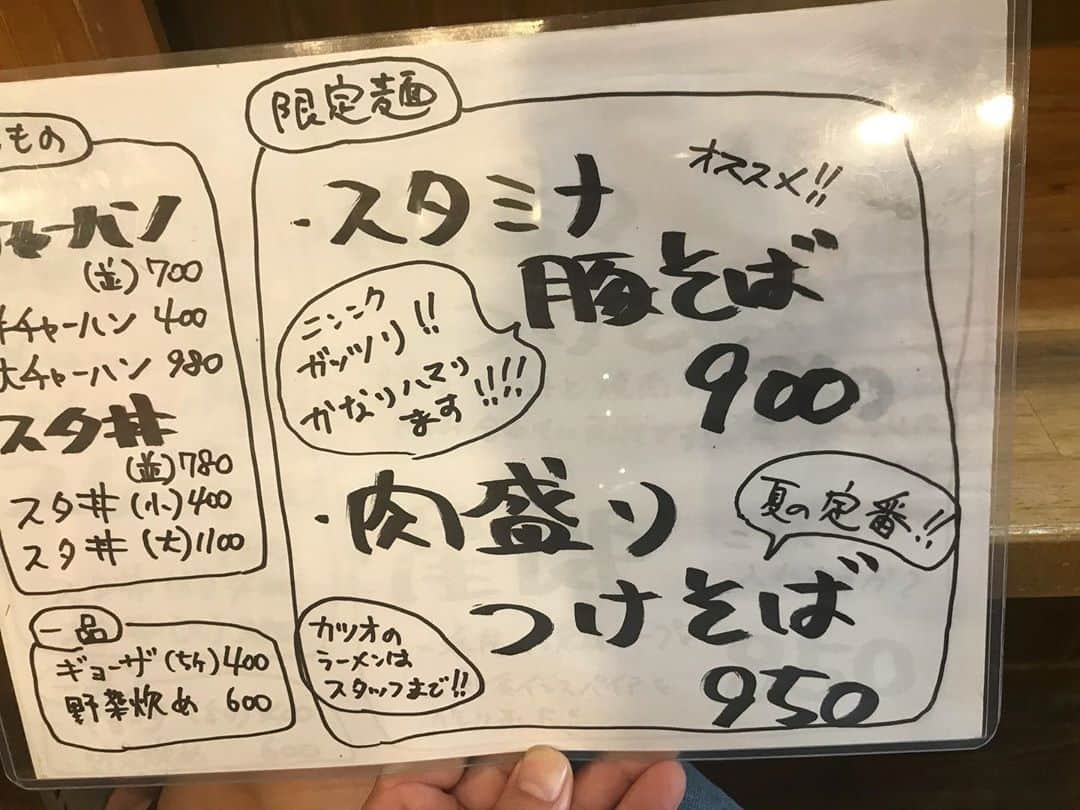 もの
チャーハン
(並)700
半チャーハン 400
大チャーハン 980
スタ丼
(並)780
スタ丼(小)400
スタ丼(大)1100
一品
ギョーザ(5ヶ)400
野菜炒め 600
限定麺
オススメ!!
・スタミナ
豚そば
900
ニンニク
ガッツリ!!
かなりハマり
ます!!!!
・肉盛り
つけそば
950
夏の定番!!
カツオの
ラーメンは
スタッフまで!!